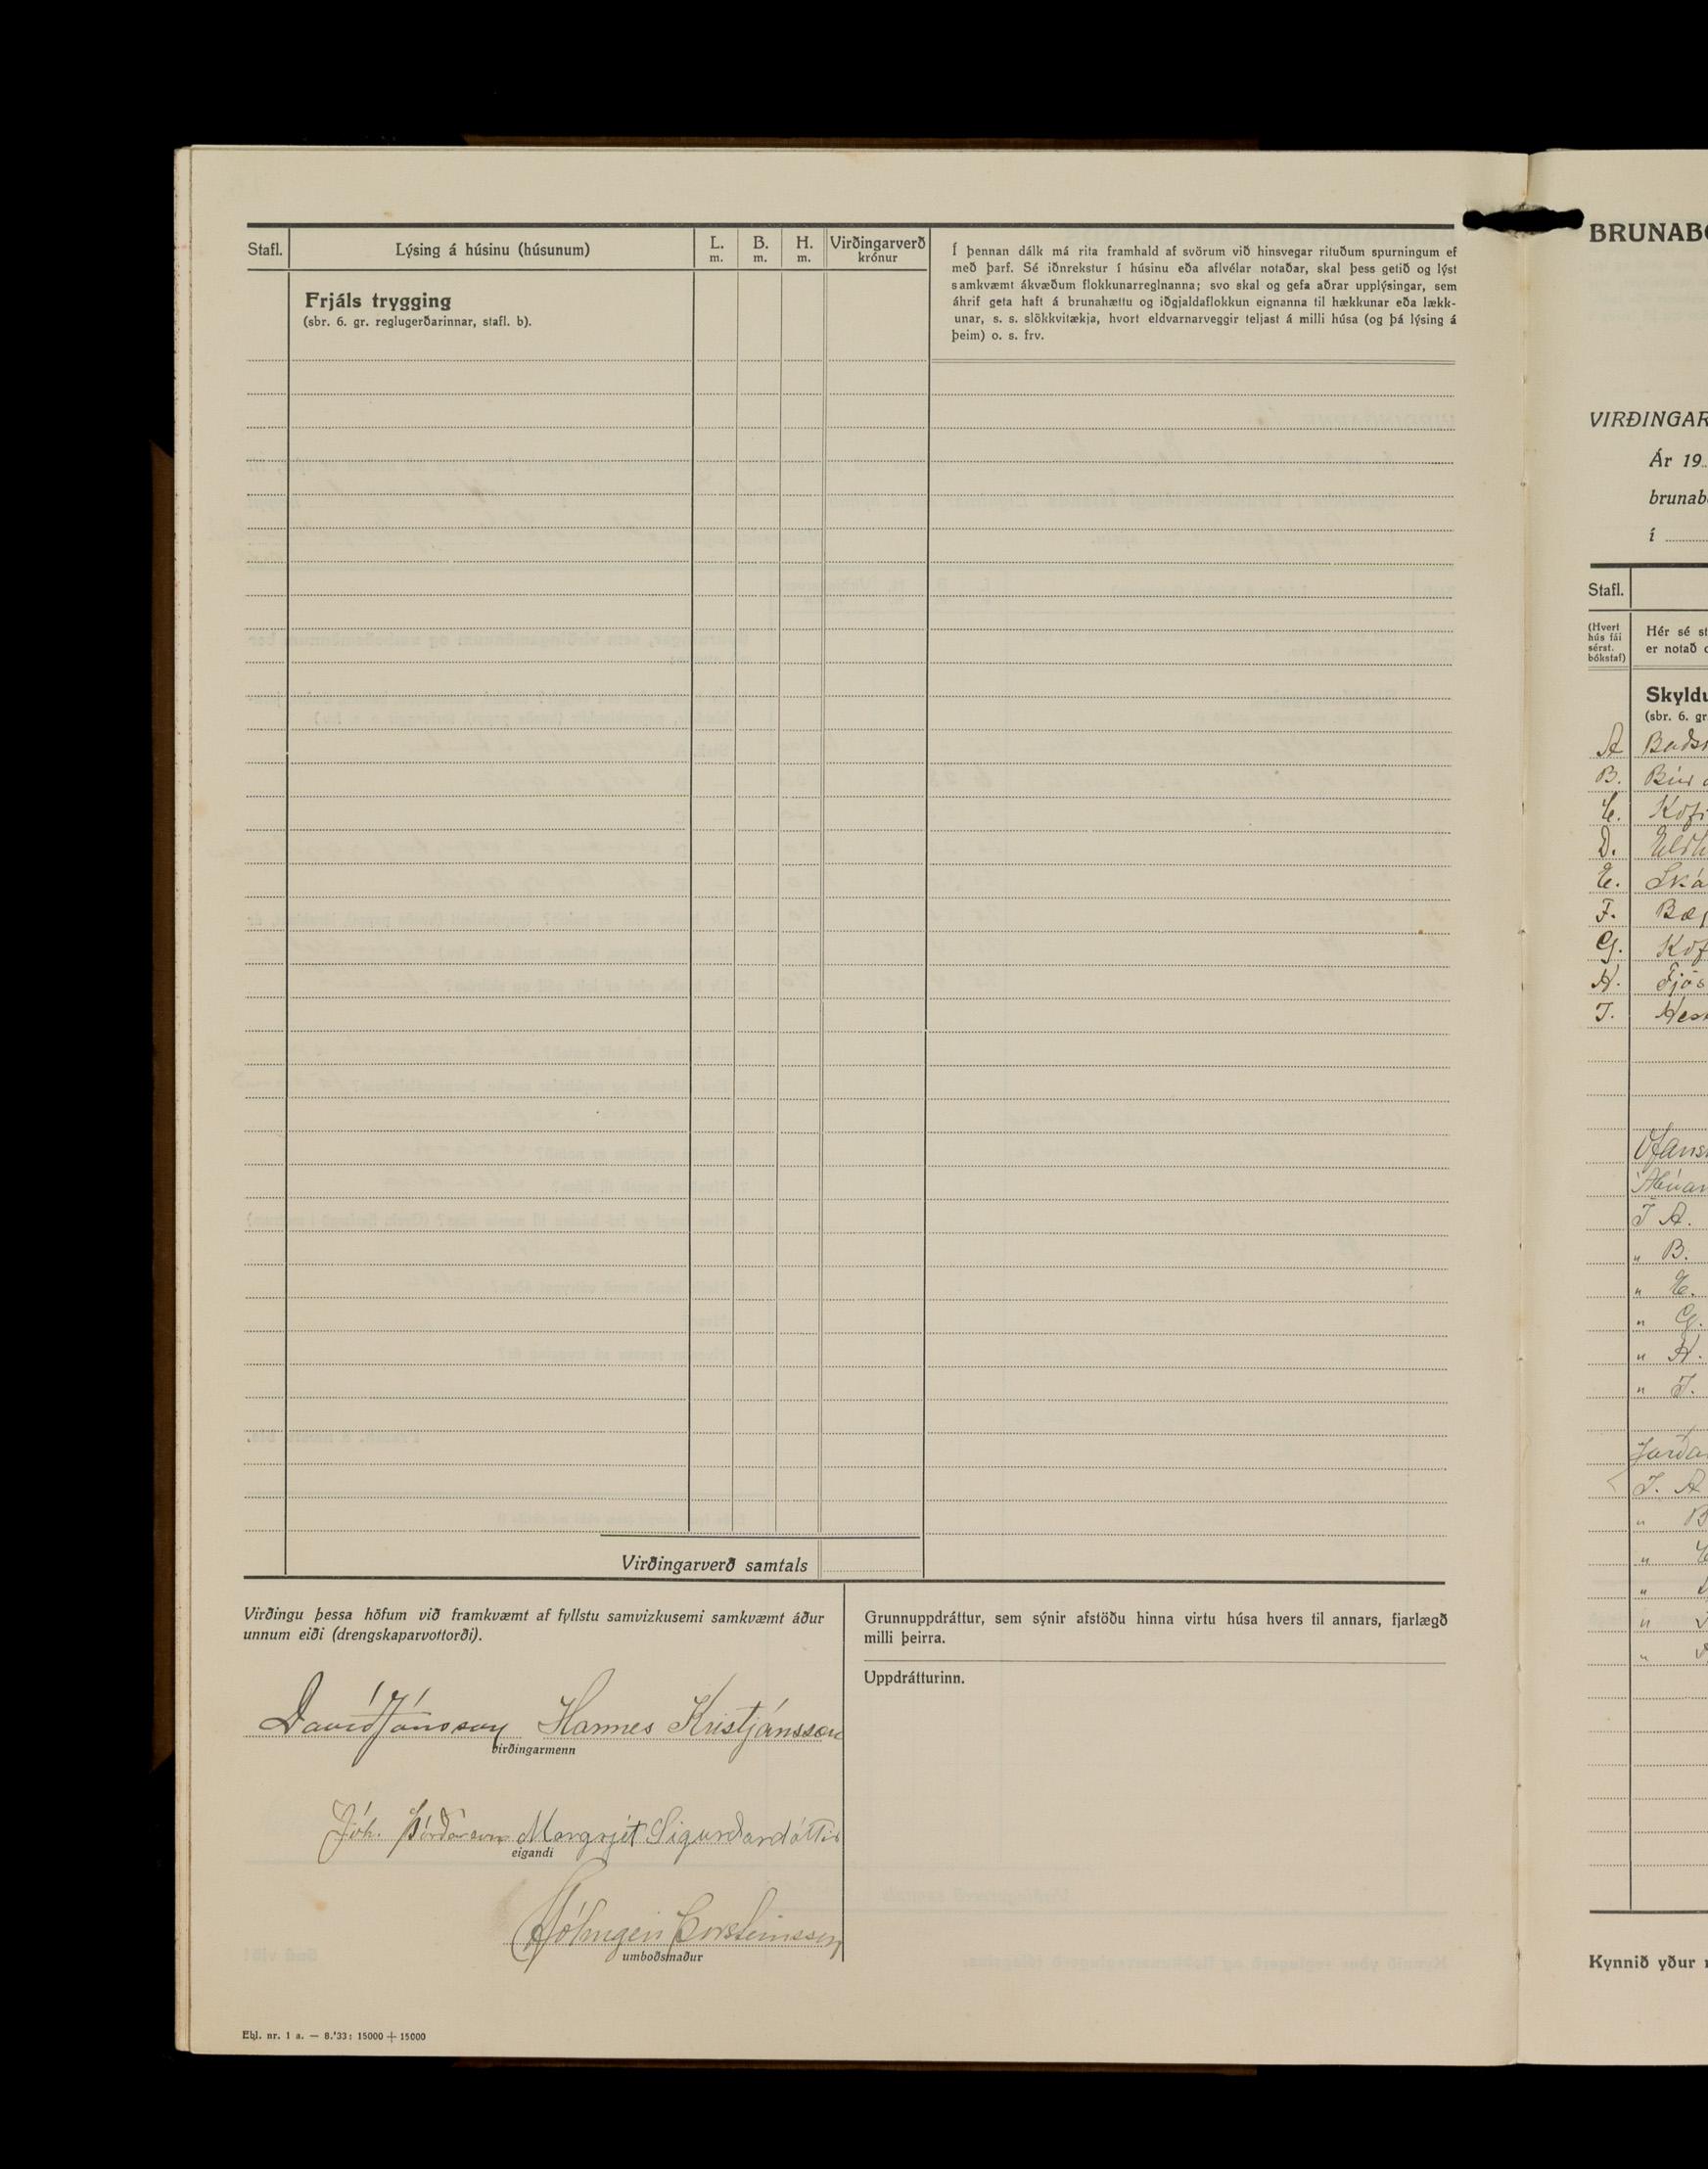 Stafl.
Lýsing á húsinu (húsunum)
L.
m.
B.
m.
H.
m.
Virðingarverð
krónur
Í þennan dálk má rita framhald af svörum við hinsvegar rituðum spurningum ef
með þarf. Sé iðnrekstur í húsinu eða aflvélar notaðar, skal þess getið og lýst
samkvæmt ákvæðum flokkunarreglnanna; svo skal og gefa aðrar upplýsingar, sem
áhrif geta haft á brunahættu og iðgjaldaflokkun eignanna til hækkunar eða lækk-
unar, s. s. slökkvitækja, hvort eldvarnarveggir teljast á milli húsa (og þá lýsing á
þeim) o. s. frv.
Frjáls trygging
(sbr. 6. gr. reglugerðarinnar, stafl. b).
Virðingarverð samtals
Virðingu þessa höfum við framkvæmt af fyllstu samvizkusemi samkvæmt áður
unnum eiði (drengskaparvottorði).
Davíð Jónsson Hannes Kristjánsson
virðingarmenn
Jóh. Þórðarson Margrjét Sigurðardóttir
eigandi
Hólmgeir Þorsteinsson
umboðsmaður
Grunnuppdráttur, sem sýnir afstöðu hinna virtu húsa hvers til annars, fjarlægð
milli þeirra.
Uppdrátturinn.
Ebl. nr. 1 a. — 8.'33: 15000 + 15000
BRUNAB
VIRÐINGAR
Ár 19
brunab
í
Stafl.
(Hvert
hús fái
sérst.
bókstaf)
Hér sé st
er notað
Skyldu
(sbr. 6. gr
A
B.
C. Kofi
D.
E. Ská
F. Bæ
G. Kof
H. Fjós
I. Hest
I A.
" B.
" C.
" G.
" H.
" I.
I. A
" B
Kynnið yður